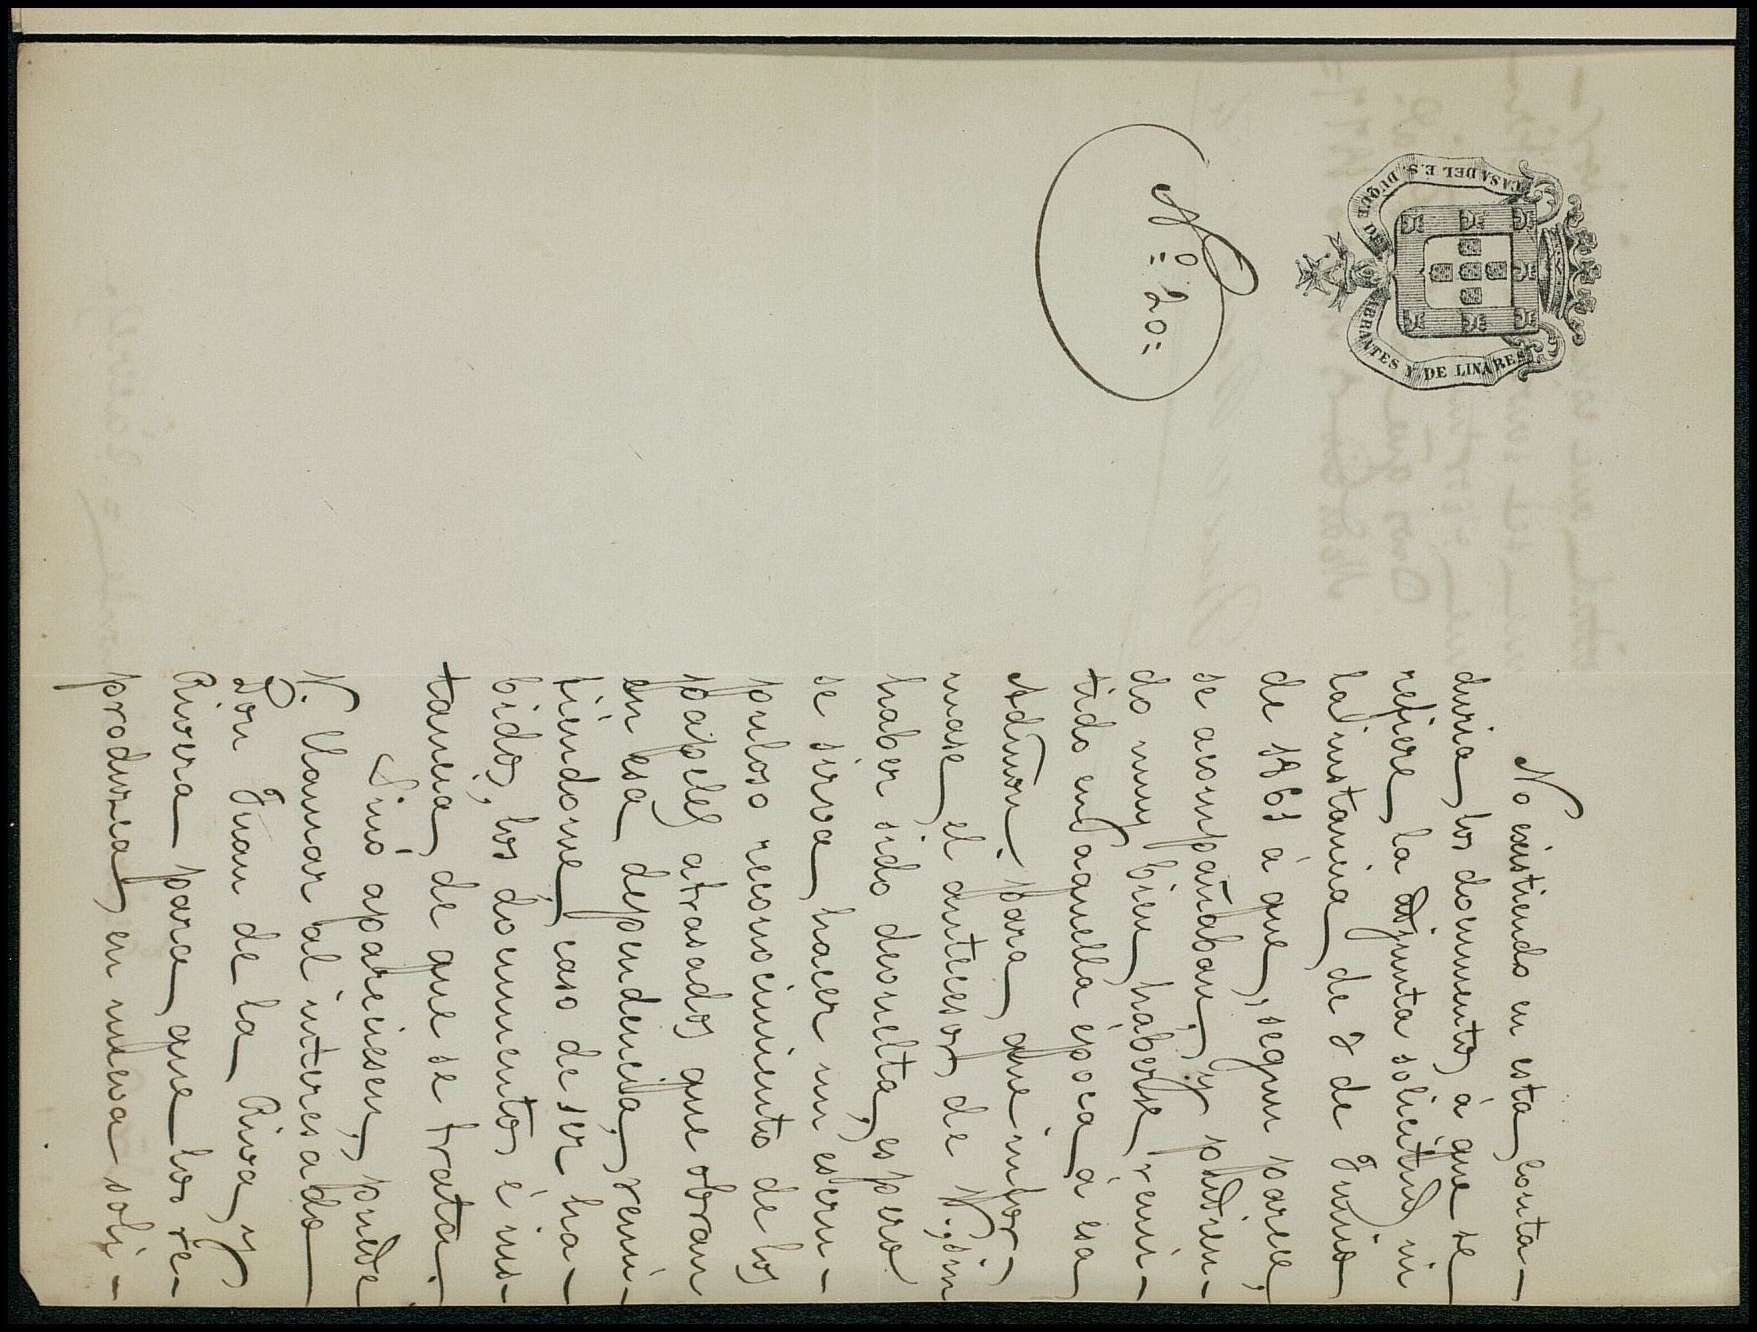 CASA DEL E.S. DUQUE DE ABRANTES Y DE LINARES
Nº=20=
No existiendo en esta Conta-
duria los documentos á que se
refiere la adjunta solicitud ni
la instancia de 8 de Junio
de 1861 á que, segun parece,
se acompañaban, y pudien-
do muy bien haberse remi-
tido en aquella época á esa
Admon. para que infor-
mase el antecesor de V., sin
haber sido devuelta, espero
se sirva hacer un escru-
puloso reconocimiento de los
papeles atrasados que obran
en esa dependencia, remi-
tiéndome, caso de ser ha-
bidos, los documentos é ins-
tancia de que se trata.
Sinó apareciesen, puede
V. llamar al interesado
Don Juan de la Riva y
Rivera para que los re-
produzca en nueva soli-